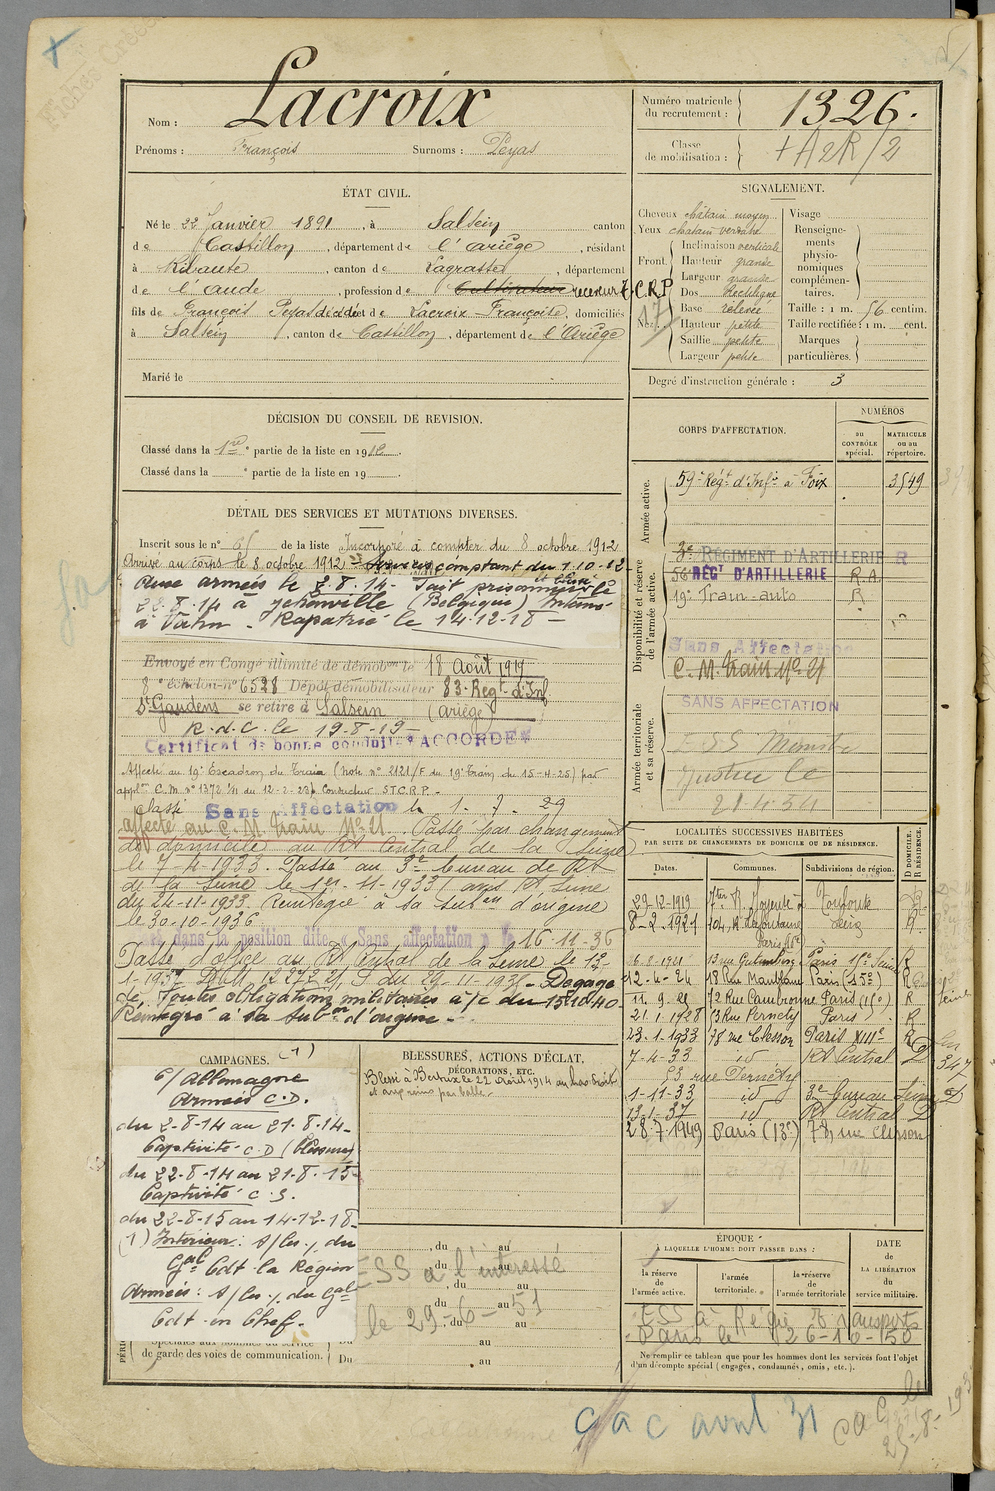 Fiches Créées
Nom : Lacroix
Prénoms : François Surnoms : Peyas
Numéro matricule du recrutement : 1326.
Classe de mobilisation : + A2R/2
ÉTAT CIVIL.
Né le 22 Janvier 1891, à Salsein canton
de Castillon, département de l'Ariège, résidant
à Ribaute, canton de Lagrasse, département
de l'aude, profession de Cultivateur receveur T.C.R.P
fils de François Peyas décédé et de Lacroix Françoise, domiciliés
à Salsein, canton de Castillon, département de l'Ariège
Marié le
SIGNALEMENT.
Cheveux châtain moyen
Yeux chatain verdâtre
Front. Inclinaison verticale
Hauteur grande
Largeur grande
Nez. Dos Rectiligne
Base relevée
Hauteur petite
Saillie petite
Largeur petite
17
Visage
Renseignements physionomiques complémentaires.
Taille : 1 m. 56 centim.
Taille rectifiée : 1 m. cent.
Marques particulières.
Degré d'instruction générale : 3
DÉCISION DU CONSEIL DE REVISION.
Classé dans la 1re partie de la liste en 1912.
Classé dans la e partie de la liste en 19 .
DÉTAIL DES SERVICES ET MUTATIONS DIVERSES.
Inscrit sous le n° 65 de la liste Incorporé à compter du 8 octobre 1912
Arrivé au corps le 8 octobre 1912 - Services comptant du 1-10-12-
aux armées le 2.8.14- Fait prisonnier et blessé le
22.8.14 à Jehonville (Belgique) Interné
à Vahn. Rapatrié le 14-12-18-
Envoyé en Congé illimité de démobon le 18 Août 1919
8e échelon n° 6528 Dépôt démobilisateur 83e Regt d'Inf.
St Gaudens se retire à Salsein (ariège)
R.d.C. le 19-8-19-
Certificat de bonne conduite ACCORDÉ
Affecté au 19e Escadron du Train (Note n° 2121/F du 19e Train du 15-4-25) par
applon C.M. n° 1372 1/11 du 12-2-23 Conducteur S.T.C.R.P.-
Classé Sans Affectation le 1. 7. 29
affecté au C.M. train N° 21. Passé par changement
de domicile au Rt Central de la Seine
le 7-4-1933. Passé au 3e bureau de Rt
de la Seine le 1er-11-1933 avis Rt Seine
du 24-11-1933. Réintégré à sa subon d'origine
le 30-10-1936
dans la position dite « Sans affectation » le 16-11-36
Passé d'office au Rt Central de la Seine le 13-
1-1937 - Dégagé
de toutes obligations militaires à/c du 15 10-40-
Réintégré à sa subon d'origine -
CORPS D'AFFECTATION.
NUMÉROS
au CONTRÔLE spécial.
MATRICULE ou au répertoire.
Armée active.
59e Régt d'Infie à Foix 3549
Disponibilité et réserve de l'armée active.
3e RÉGIMENT D'ARTILLERIE R
56e RÉGt D'ARTILLERIE R.A.
19e Train-auto R
Sans Affectation
C.M. train N° 21
Armée territoriale et sa réserve.
SANS AFFECTATION
ESS Ministre
Justice le
21-4-54
LOCALITÉS SUCCESSIVES HABITÉES
PAR SUITE DE CHANGEMENTS DE DOMICILE OU DE RÉSIDENCE.
Dates. Communes. Subdivisions de région. D DOMICILE. R RÉSIDENCE.
29-12-1919 Toulouse
8-2-1921 104, R. Lafontaine Paris Seine R
Paris 1er Seine R
12-6-24 18 Rue Maublanc Paris (15e) R
11. 9. 25 72 Rue Cambronne Paris (15e) R
21.1.1928 13 Rue Pernety Paris R
23-1-1933 78 rue Clisson Paris XIIIe R
7-4-33 id Rt Central D
53 rue Pernety
1-11-33 id 3e bureau Seine D
13-1-37 id Rt Central D
28-7-1949 Paris (13e) 78, rue Clisson
CAMPAGNES. (1)
c/ Allemagne
Armées C.D.
du 2-8-14 au 21-8-14-
Captivité C.D (blessure)
du 22-8-14 au 21-8-15-
Captivité C.S.
du 22-8-15 au 14-12-18-
(1) Intérieur : s/les/ du
Gal Cdt la Région
Armées : s/les/ du Gal
Cdt en Chef-
BLESSURES, ACTIONS D'ÉCLAT,
DÉCORATIONS, ETC.
Blessé à Bertrix le 22 Août 1914 au bras droit
et aux reins par balle.
, du au
ESS à l'intéressé
le 29-6-51
Spéciales aux hommes du service
de garde des voies de communication. Du au
ÉPOQUE
À LAQUELLE L'HOMME DOIT PASSER DANS :
la réserve de l'armée active.
l'armée territoriale.
la réserve de l'armée territoriale
DATE DE LA LIBÉRATION du service militaire.
ESS à Régie Transports
Paris le 26-10-50
Ne remplir ce tableau que pour les hommes dont les services font l'objet
d'un décompte spécial (engagés, condamnés, omis, etc.).
C a c avril 31
CAC le
25-8-193